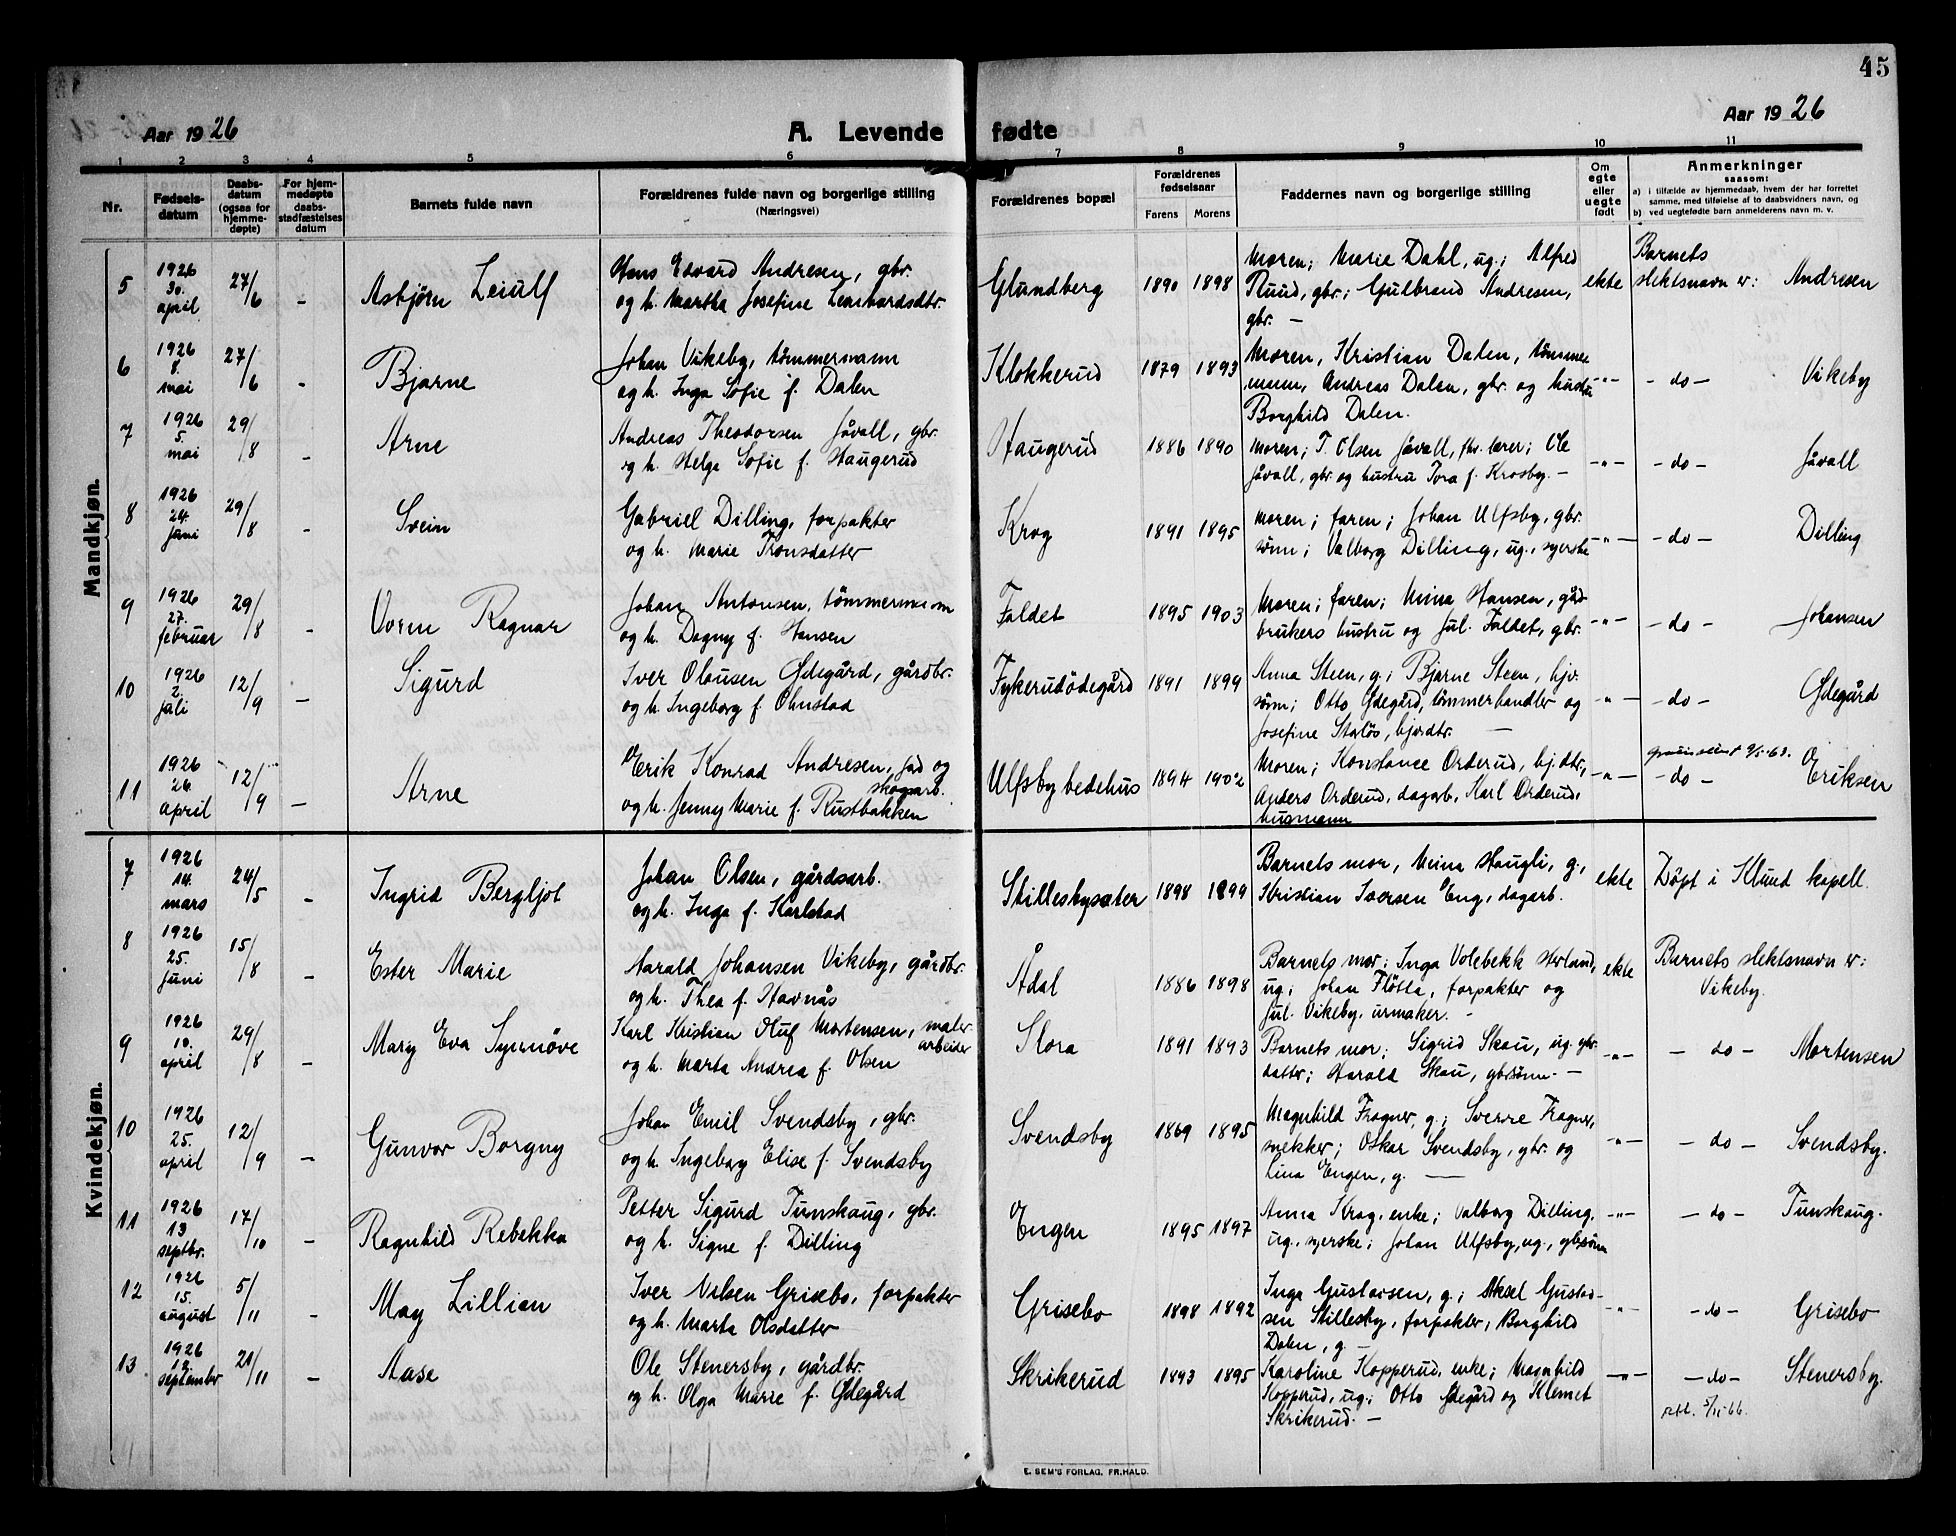 45
Aar 1926
A. Levende fødte
Aar 1926
1 2 3 4 5 6 7 8 9 10 11
Nr.
Fødselsdatum
Daabsdatum (ogsaa for hjemmedøpte)
For hjemmedøpte daabsstadfæstelses datum
Barnets fulde navn
Forældrenes fulde navn og borgerlige stilling
(Næringsvei)
Forældrenes bopæl
Forældrenes fødselsaar
Farens Morens
Faddernes navn og borgerlige stilling
Om egte eller uegte født
Anmerkninger
saasom:
a) i tilfælde av hjemmedaab, hvem der har forrettet
samme, med tilføielse af to daabsvidners navn, og
b) ved uegtefødte barn anmelderens navn m. v.
Mandkjøn.
5 1926 30. april 27/6 - Asbjørn Leiulf
Hans Edvard Andresen, gbr.
og h. Martha Josefine Lenhardsdtr.
Glundberg 1890 1898
Moren; Marie Dahl, ug.; Alfred
Ruud, gbr.; Gulbrand Andresen,
gbr. -
ekte
Barnets slektsnavn er: Andresen
6 1926 8. mai 27/6 - Bjarne
Johan Vikeby, tømmermann
og h. Inga Sofie f. Dalen
Klokkerud 1879 1893
Moren, Kristian Dalen, tømmer
mann, Andreas Dalen, gbr. og hustru
Borghild Dalen.
-"- - do - Vikeby
7 1926 5. mai 29/8 - Arne
Andreas Theodorsen Jåvall, gbr.
og h. Helga Sofie f. Haugerud
Haugerud 1886 1890
Moren; T. Olsen Jåvall, fhv. lærer; Ole
Jåvall, gbr. og hustru Tora f. Krosby. -
-"- - do - Jåvall
8 1926 24. juni 29/8 - Svein
Gabriel Dilling, forpakter
og h. Marie Tronsdatter
Krog 1891 1895
Moren; faren; Johan Ulfsby, gbr.
sønn; Valborg Dilling, ug., syerske
-"- - do - Dilling
9 1926 27. februar 29/8 - Vorm Ragnar
Johan Antonsen, tømmermann
og h. Dagny f. Hansen
Faldet 1895 1903
Moren; faren; Mina Hansen, gård
brukers hustru og Jul. Faldet, gbr.
-"- - do - Johansen
10 1926 2. juli 12/9 - Sigurd
Iver Olausen Ødegård, gårdbr.
og h. Ingeborg f. Ohnstad
Fykerudødegård 1891 1899
Anna Steen, g.; Bjarne Steen, hjv.
sønn; Otto Ødegård, tømmerhandler og
Josefine Storløs, hjvrdtr. -
-"- - do - Ødegård
11 1926 26. april 12/9 - Arne
Erik Konrad Andresen, jord og
skogsarb.
og h. Jenny Marie f. Rustbakken
Ulfsby bedehus 1894 1902
Moren; Konstanse Orderud, hj.dtr,
Anders Orderud, dagarb, Karl Orderud,
husmann
-"- - do - Eriksen
Kvindekjøn.
7 1926 14. mars 24/5 - Ingrid Bergljot
Johan Olsen, gårdsarb.
og h. Inga f. Karlstad
Stillesbysæter 1898 1899
Barnets mor, Meina Haugli, g.,
Kristian Iversen Eng, dagarb.
ekte Døpt i Klund kapell.
8 1926 25. juni 15/8 - Ester Marie
Harald Johansen Vikeby, gårdbr.
og h. Thea f. Havnås
Ådal 1886 1898
Barnets mor; Inga Volebekk Herland,
ug; Johan Fløtta, forpakter og
Jul. Vikeby, urmaker. -
ekte Barnets slektsnavn er:
Vikeby.
9 1926 10. april 29/8 - Mary Eva Synnøve
Karl Kristian Oluf Mortensen, maler
arbeider
og h. Marta Andrea f. Olsen
Slora 1891 1893
Barnets mor; Sigrid Skau, ug. gbr.
datter; Harald Skau, gbrsønn. -
-"- - do - Mortensen
10 1926 25. april 12/9 - Gunvor Borgny
Johan Emil Svendsby, gbr.
og h. Ingeborg Elise f. Svendsby
Svendsby 1869 1895
Magnhild Fragner, g.; Sverre Fragner,
snekker; Oskar Svendsby, gbr. og
Lina Engen, g. -
-"- - do - Svendsby.
11 1926 13 septbr. 17/10 - Ragnhild Rebekka
Petter Sigurd Tunskaug, gbr.
og h. Signe f. Dilling
Engen 1895 1897
Anna Krog, enke; Valborg Dilling,
ug., syerske; Johan Ulfsby, ug., gbrsønn
-"- - do - Tunskaug.
12 1926 15. august 5/11 - May Lillian
Iver Nilsen Grisebo, forpakter
og h. Marta Olsdatter
Grisebo 1898 1892
Inga Gustavsen, g.; Aksel Gustav-
sen Stillesby, forpakter, Borghild
Dalen, g. -
-"- - do - Grisebo
13 1926 12. september 21/11 - Aase
Ole Stenersby, gårdbr.
og h. Olga Marie f. Ødegård
Skrikerud 1893 1895
Karoline Kopperud, enke; Magnhild
Kopperud, ug.; Otto Ødegård og Klemet
Skrikerud. -
-"- - do - Stenersby.
E. SEM'S FORLAG, FR.HALD.